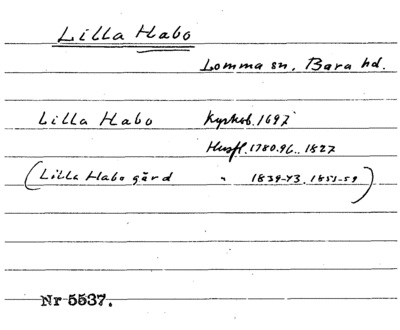 Lilla Habo
Lomma sn. Bara hd.
Lilla Habo Kyrkob. 1697
Husfl. 1780.96.. 1827
(Lilla Habo gård " 1839-43. 1851-59)
Nr 5537.